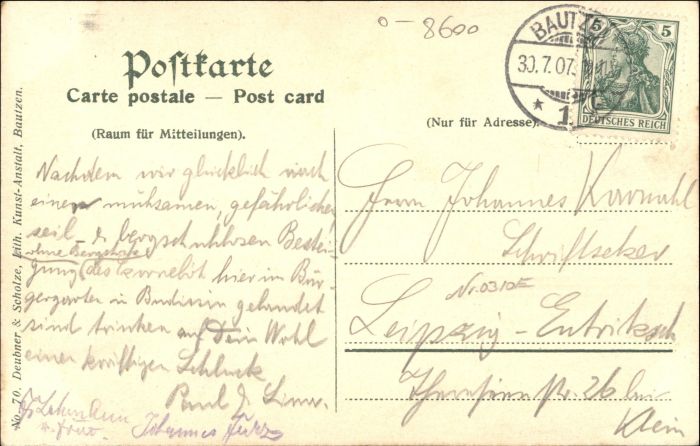 0-8600
BAUTZEN
30.7.07.
* 1.
5 5
DEUTSCHES REICH
Postkarte
Carte postale — Post card
(Raum für Mitteilungen).
(Nur für Adresse).
No. 70. Deubner & Scholze, lith. Kunst-Anstalt, Bautzen.
Nachdem wir glücklich nach
einer mühsamen, gefährlichen
seil- & bergschuhlosen Bestei-
ohne Bergstock
gung des hier im Bür-
gergarten in Budissin gelandet
sind trinken auf Dein Wohl
einen kräftigen Schluck
Paul
u. Frau. Johannes
Herrn Johannes
Schriftsetzer
Nr. 0310E
Leipzig-Eutritzsch
str. 26 bei
Klein